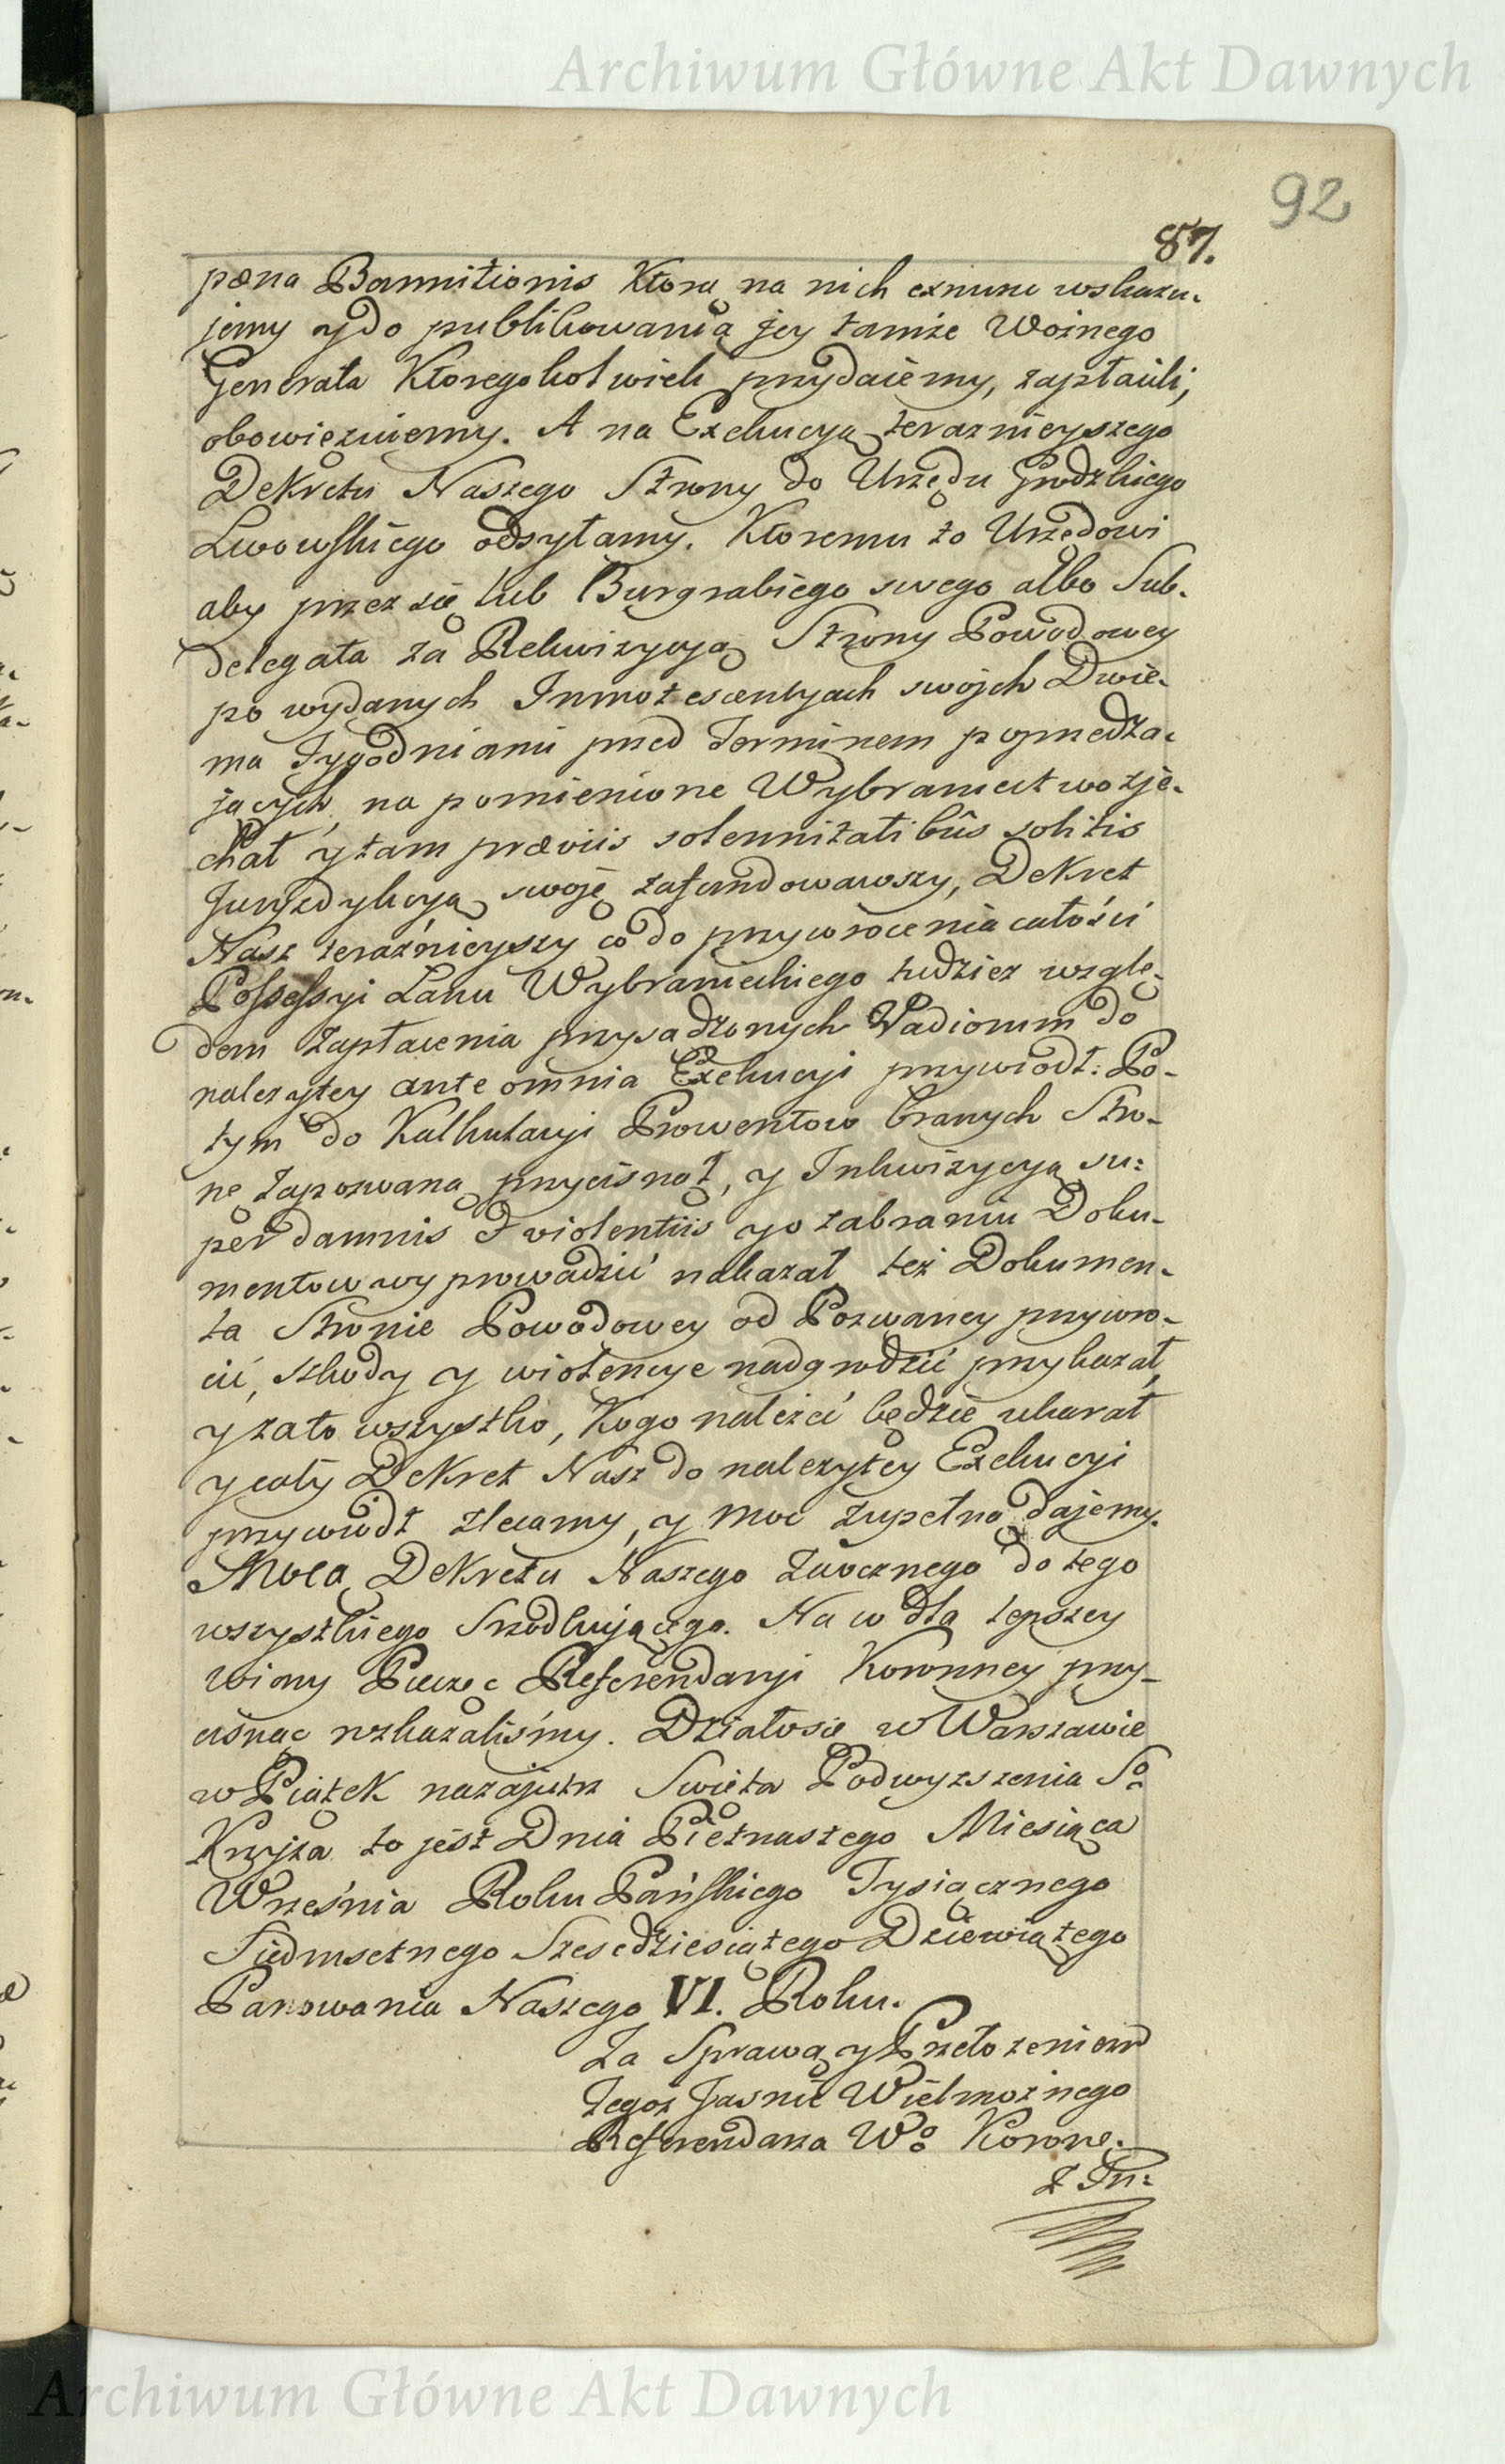 Archiwum Główne Akt Dawnych
92
87.
pœna Bannitionis Którą na nich exnunc wskazu-
jemy y do publikowania jey tamże Woźnego
Generała Ktoregokolwiek przydaiemy, zapłacili,
obowięzuiemy. A na Exekucyą teraznieyszego
Dekretu Naszego Strony do Urzędu Grodzkiego
Lwowskiego odsyłamy. Ktoremu to Urzędowi
aby przez się lub Burgrabiego swego albo Sub-
delegata za Rekwizycyą Strony Powodowey
po wydanych Innotescencyach swojch Dwie-
ma Tygodniami przed Terminem poprzedza-
jących, na pomienione Wybraniectwo zje-
chał y tam præviis solennitatibûs solitis
Juryzdykcyą swoję zafundowawszy, Dekret
Nasz teraźnieyszy co do przywrocenia całości
Possessyi Łanu Wybranieckiego tudziez wzglę-
dem Zapłacenia przysądzonych Vadiorum do
nalezytey ante omnia Exekucyi przywiodł: Po-
tym do Kalkulacyi Prowentow branych Stro-
nę Zapozwaną przycisnął, y Inkwizycyą su:
per damnis & violentiis y o zabraniu Doku-
mentow wyprowadzić nakazał, też Dokumen-
ta Stronie Powodowey od Pozwaney przywro-
cić, szkody y wiolencye nadgrodzić przykazał,
y zato wszystko, Kogo należeć będzie ukarał
y cały Dekret Nasz do nalezytey Exekucyi
przywiodł zlecamy, y moc zupełną dajemy.
Mocą Dekretu Naszego Zaocznego do tego
wszystkiego Srzodkującego. Na co dla lepszey
wiary Pieczęć Referendaryi Koronney przy-
cisnąc rozkazaliśmy. Działosie w Warszawie
w Piątek nazajutrz Swięta Podwyzszenia So
Krzyża to jest Dnia Piętnastego Miesiąca
Września Roku Pańskiego Tysiącznego
Siedmsetnego Szescdziesiątego Dziewiątego
Panowania Naszego VI. Roku.
Za Sprawą y Przełozeniem
Tegoż Jasnie Wielmoznego
Referendarza Wo Koronne.
Archiwum Główne Akt Dawnych